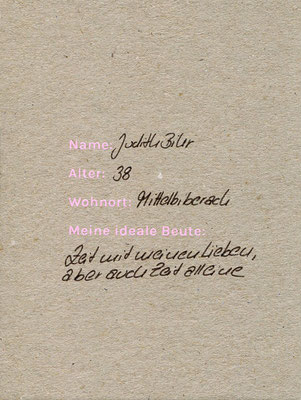 Name: Judith Biler
Alter: 38
Wohnort: Mittelbiberach
Meine ideale Beute:
Zeit mit meinen Lieben,
aber auch Zeit alleine